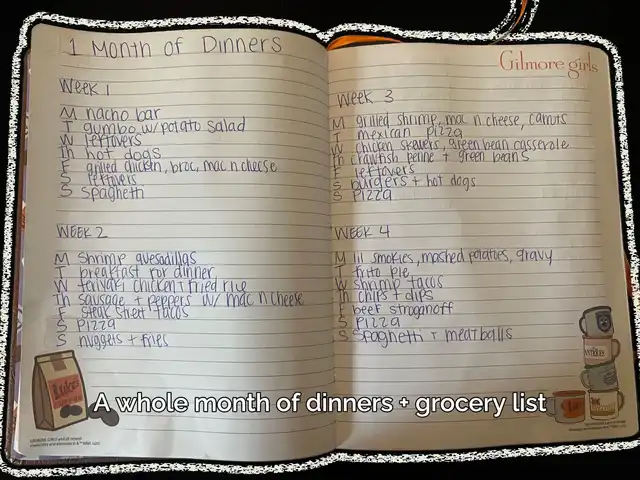 1 Month of Dinners
WEEK 1
M nacho bar
T gumbo w/ potato salad
W leftovers
Th hot dogs
F grilled chicken, broc, mac n cheese
S leftovers
S Spaghetti
WEEK 2
M Shrimp quesadillas
T breakfast for dinner
W teriyaki chicken + fried rice
Th Sausage + peppers w/ mac n cheese
F steak street tacos
S PIZZA
S nuggets + fries
Luke's
Gilmore girls
WEEK 3
M grilled shrimp, mac n cheese, carrots
T mexican pizza
W chicken skewers, green bean casserole
Th crawfish penne + green beans
F leftovers
S burgers + hot dogs
S PIZZA
WEEK 4
M lil smokies, mashed potatoes, gravy
T frito pie
W shrimp tacos
Th chips + dips
F beef stroganoff
S PIZZA
S Spaghetti + meatballs
A whole month of dinners + grocery list